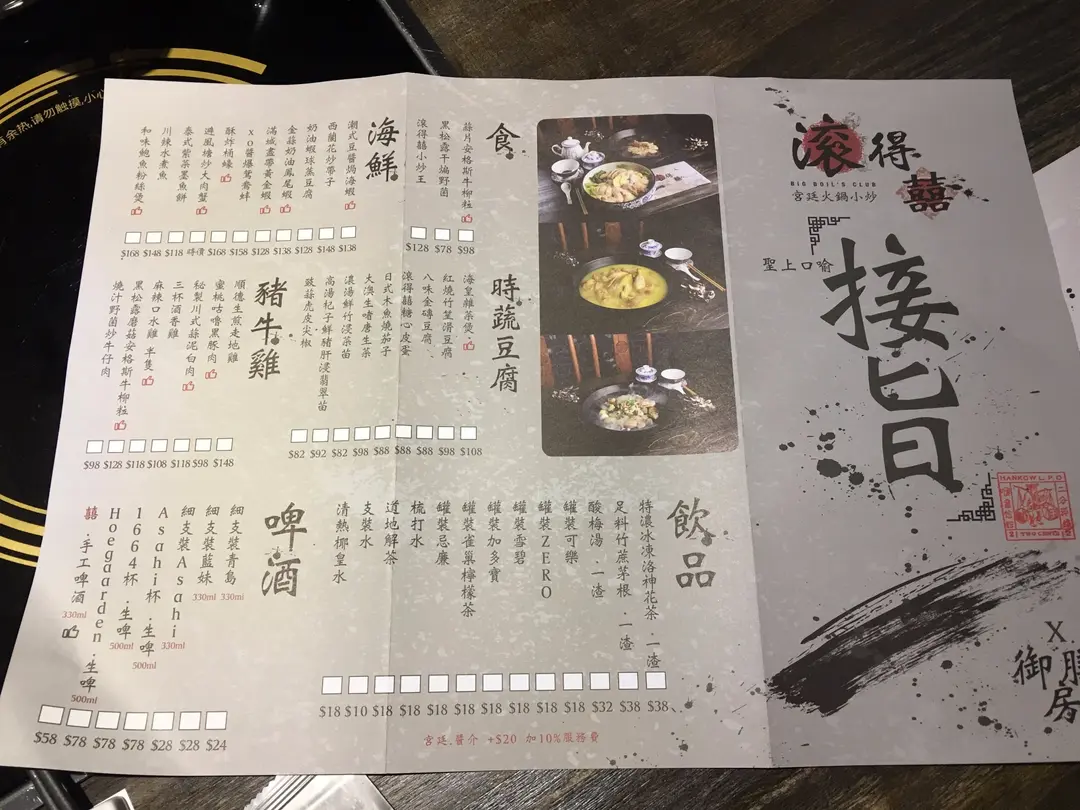 滾得囍
BIG BOIL'S CLUB
宮廷火鍋小炒
聖上口喻
接旨
X
御膳房
HANKOW L.P.O
TWO CENTS
食
蒜片安格斯牛柳粒
黑松露干煸野菌
滾得囍小炒王
$128 $78 $98
海鮮
潮式豆醬焗海蝦
西蘭花炒帶子
奶油蝦球蒸豆腐
金蒜奶油鳳尾蝦
滿城盡帶黃金蝦
XO醬爆鴛鴦蚌
酥炸桶蠔
避風塘炒大肉蟹
泰式紫茶墨魚餅
川辣水煮魚
和味鮑魚粉絲煲
$168 $148 $118 時價 $168 $158 $128 $138 $128 $148 $138
時蔬豆腐
海皇雜菜煲
紅燒竹笙滑豆腐
八味金磚豆腐
滾得囍糖心皮蛋
日式木魚燒茄子
大澳生啫唐生菜
濃湯鮮竹浸菜苗
高湯杞子鮮豬肝浸翡翠苗
豉蒜虎皮尖椒
$82 $92 $82 $98 $88 $88 $88 $98 $108
豬牛雞
順德生煎走地雞
蜜桃咕嚕黑豚肉
秘製川式蒜泥白肉
三杯酒香雞
麻辣口水雞 半隻
黑松露磨菇安格斯牛柳粒
燒汁野菌炒牛仔肉
$98 $128 $118 $108 $118 $98 $148
飲品
特濃冰凍洛神花茶．一渣
足料竹蔗茅根．一渣
酸梅湯．一渣
罐裝可樂
罐裝ZERO
罐裝雪碧
罐裝加多寶
罐裝雀巢檸檬茶
罐裝忌廉
梳打水
道地解茶
支裝水
清熱椰皇水
$18 $10 $18 $18 $18 $18 $18 $18 $18 $18 $32 $38 $38
宮廷.醬介 +$20 加10%服務費
啤酒
細支裝青島 330ml
細支裝藍妹 330ml
細支裝Asahi 330ml
Asahi杯．生啤 500ml
1664杯．生啤 500ml
Hoegaarden．生啤 500ml
囍．手工啤酒 330ml
$58 $78 $78 $78 $28 $28 $24
余热,请勿触摸,小心